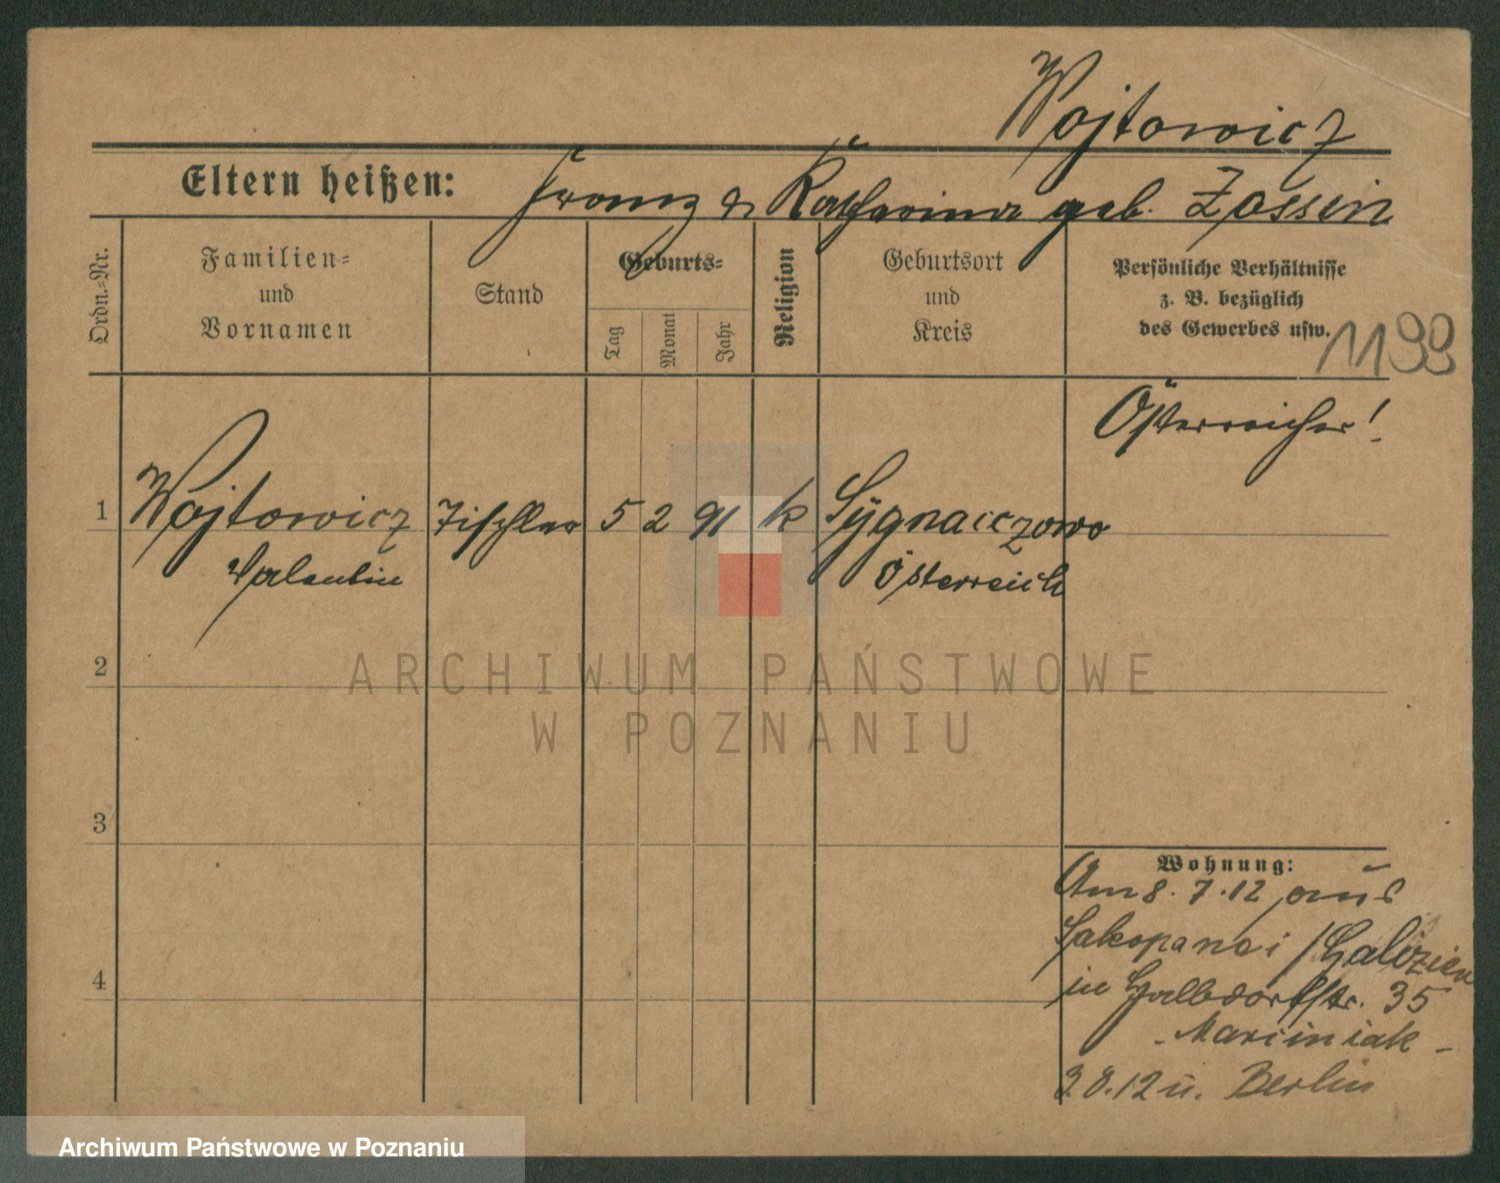 Wojtowicz
Eltern heißen: Franz & Katharina geb. Zossin
Ordn.-Nr.
Familien-
und
Vornamen
Stand
Geburts-
Tag
Monat
Jahr
Religion
Geburtsort
und
Kreis
Persönliche Verhältnisse
z. B. bezüglich
des Gewerbes usw.
1199
Österreicher!
1 Wojtowicz Tischler 5 2 91 k Sygnaiczowo
Valentin Österreich
2
3
4
Wohnung:
Am 8.7.12 aus
Sakopane i/Galizien
in Halbdorfstr. 35
- Marciniak -
8.12 n. Berlin
ARCHIWUM PAŃSTWOWE
W POZNANIU
Archiwum Państwowe w Poznaniu